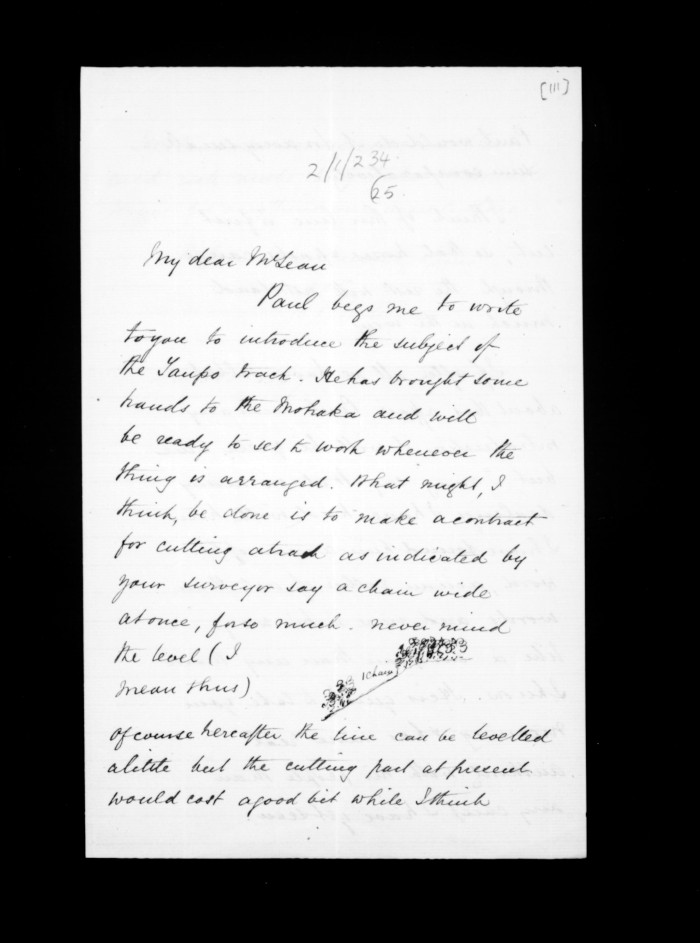 [111]
2/1/234.
(25.
My dear McLean
Paul begs me to write
to you to introduce the subject of
the Taupo track. He has brought some
hands to the Mohaka and will
be ready to set to work whenever the
thing is arranged. What might, I
think, be done is to make a contract
for cutting a track as indicated by
your surveyor say a chain wide
at once, for so much. never mind
the level (I
mean thus)
1 Chain
of course hereafter the line can be levelled
a little but the cutting part at present
would cost a good bit while I think